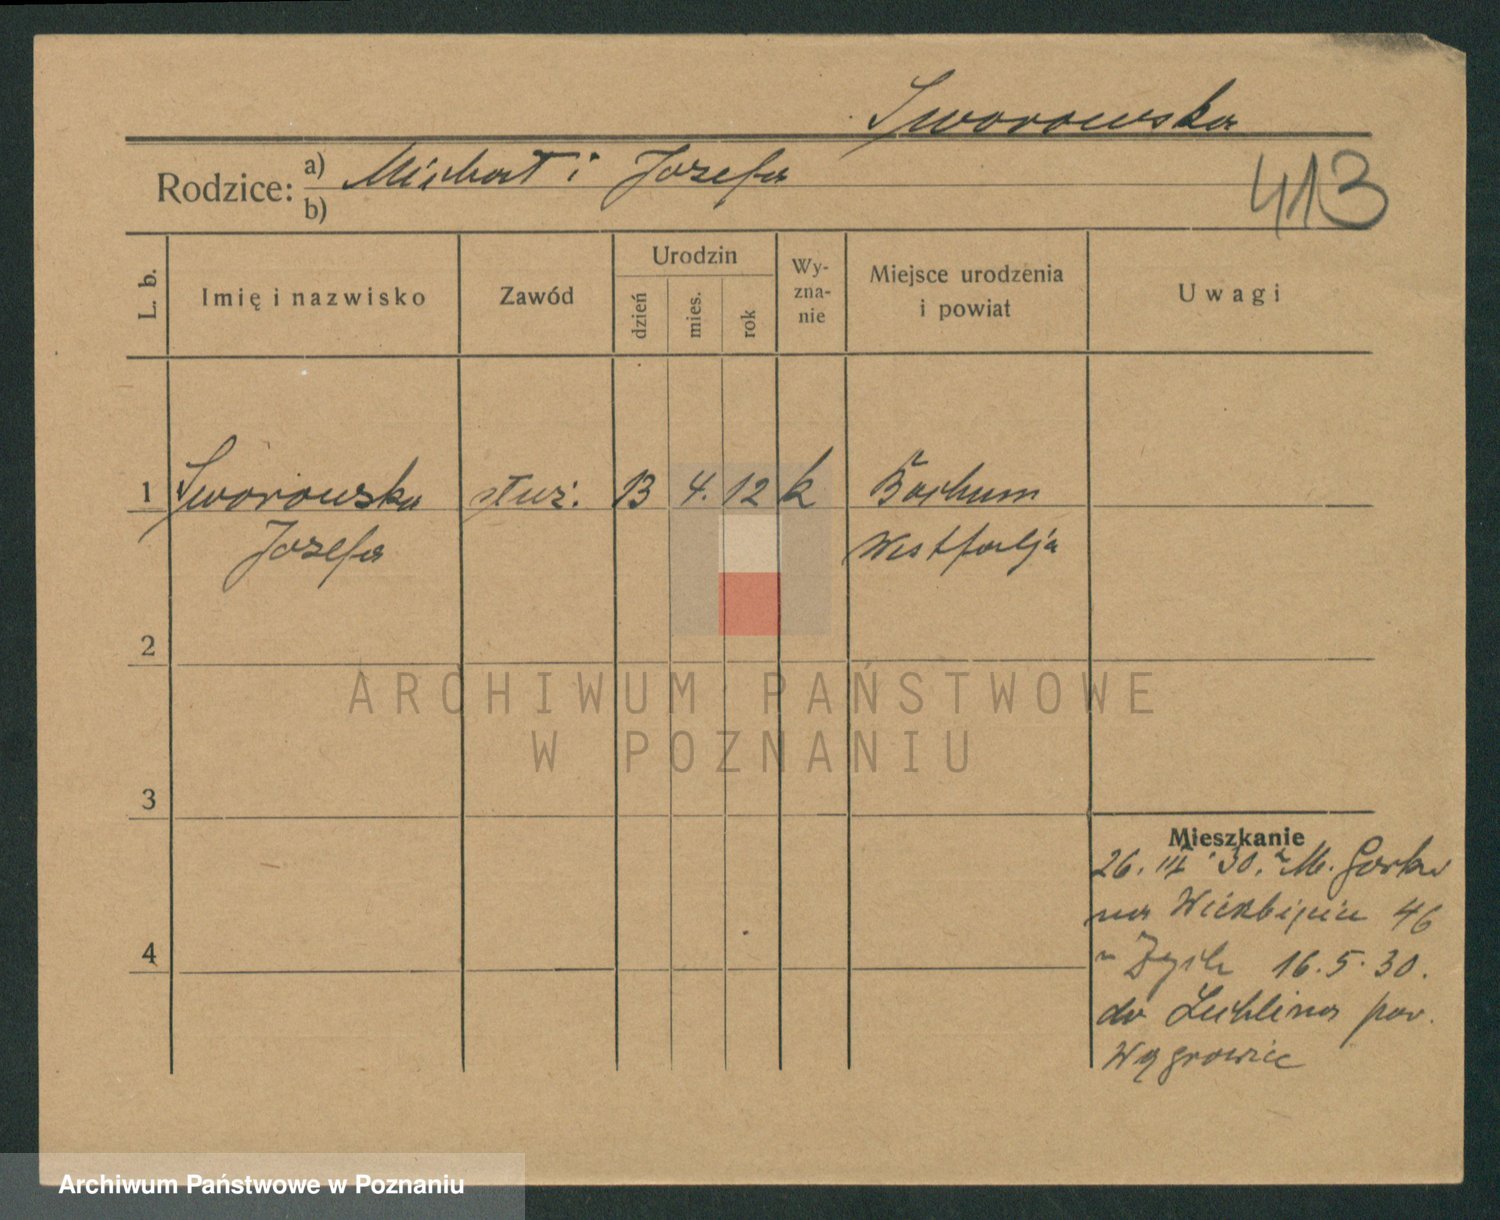 Sworowska
Rodzice: a) Michał i Józefa
b)
413
L. b.
Imię i nazwisko
Zawód
Urodzin
dzień
mies.
rok
Wy-
zna-
nie
Miejsce urodzenia
i powiat
Uwagi
1 Sworowska służ. 13 4. 12 k Bochum
Józefa Westfalja
2
3
4
Mieszkanie
26. 30. M. Gorka
na 46
16.5.30.
do Lechlina pow.
Wągrowiec
ARCHIWUM PAŃSTWOWE
W POZNANIU
Archiwum Państwowe w Poznaniu